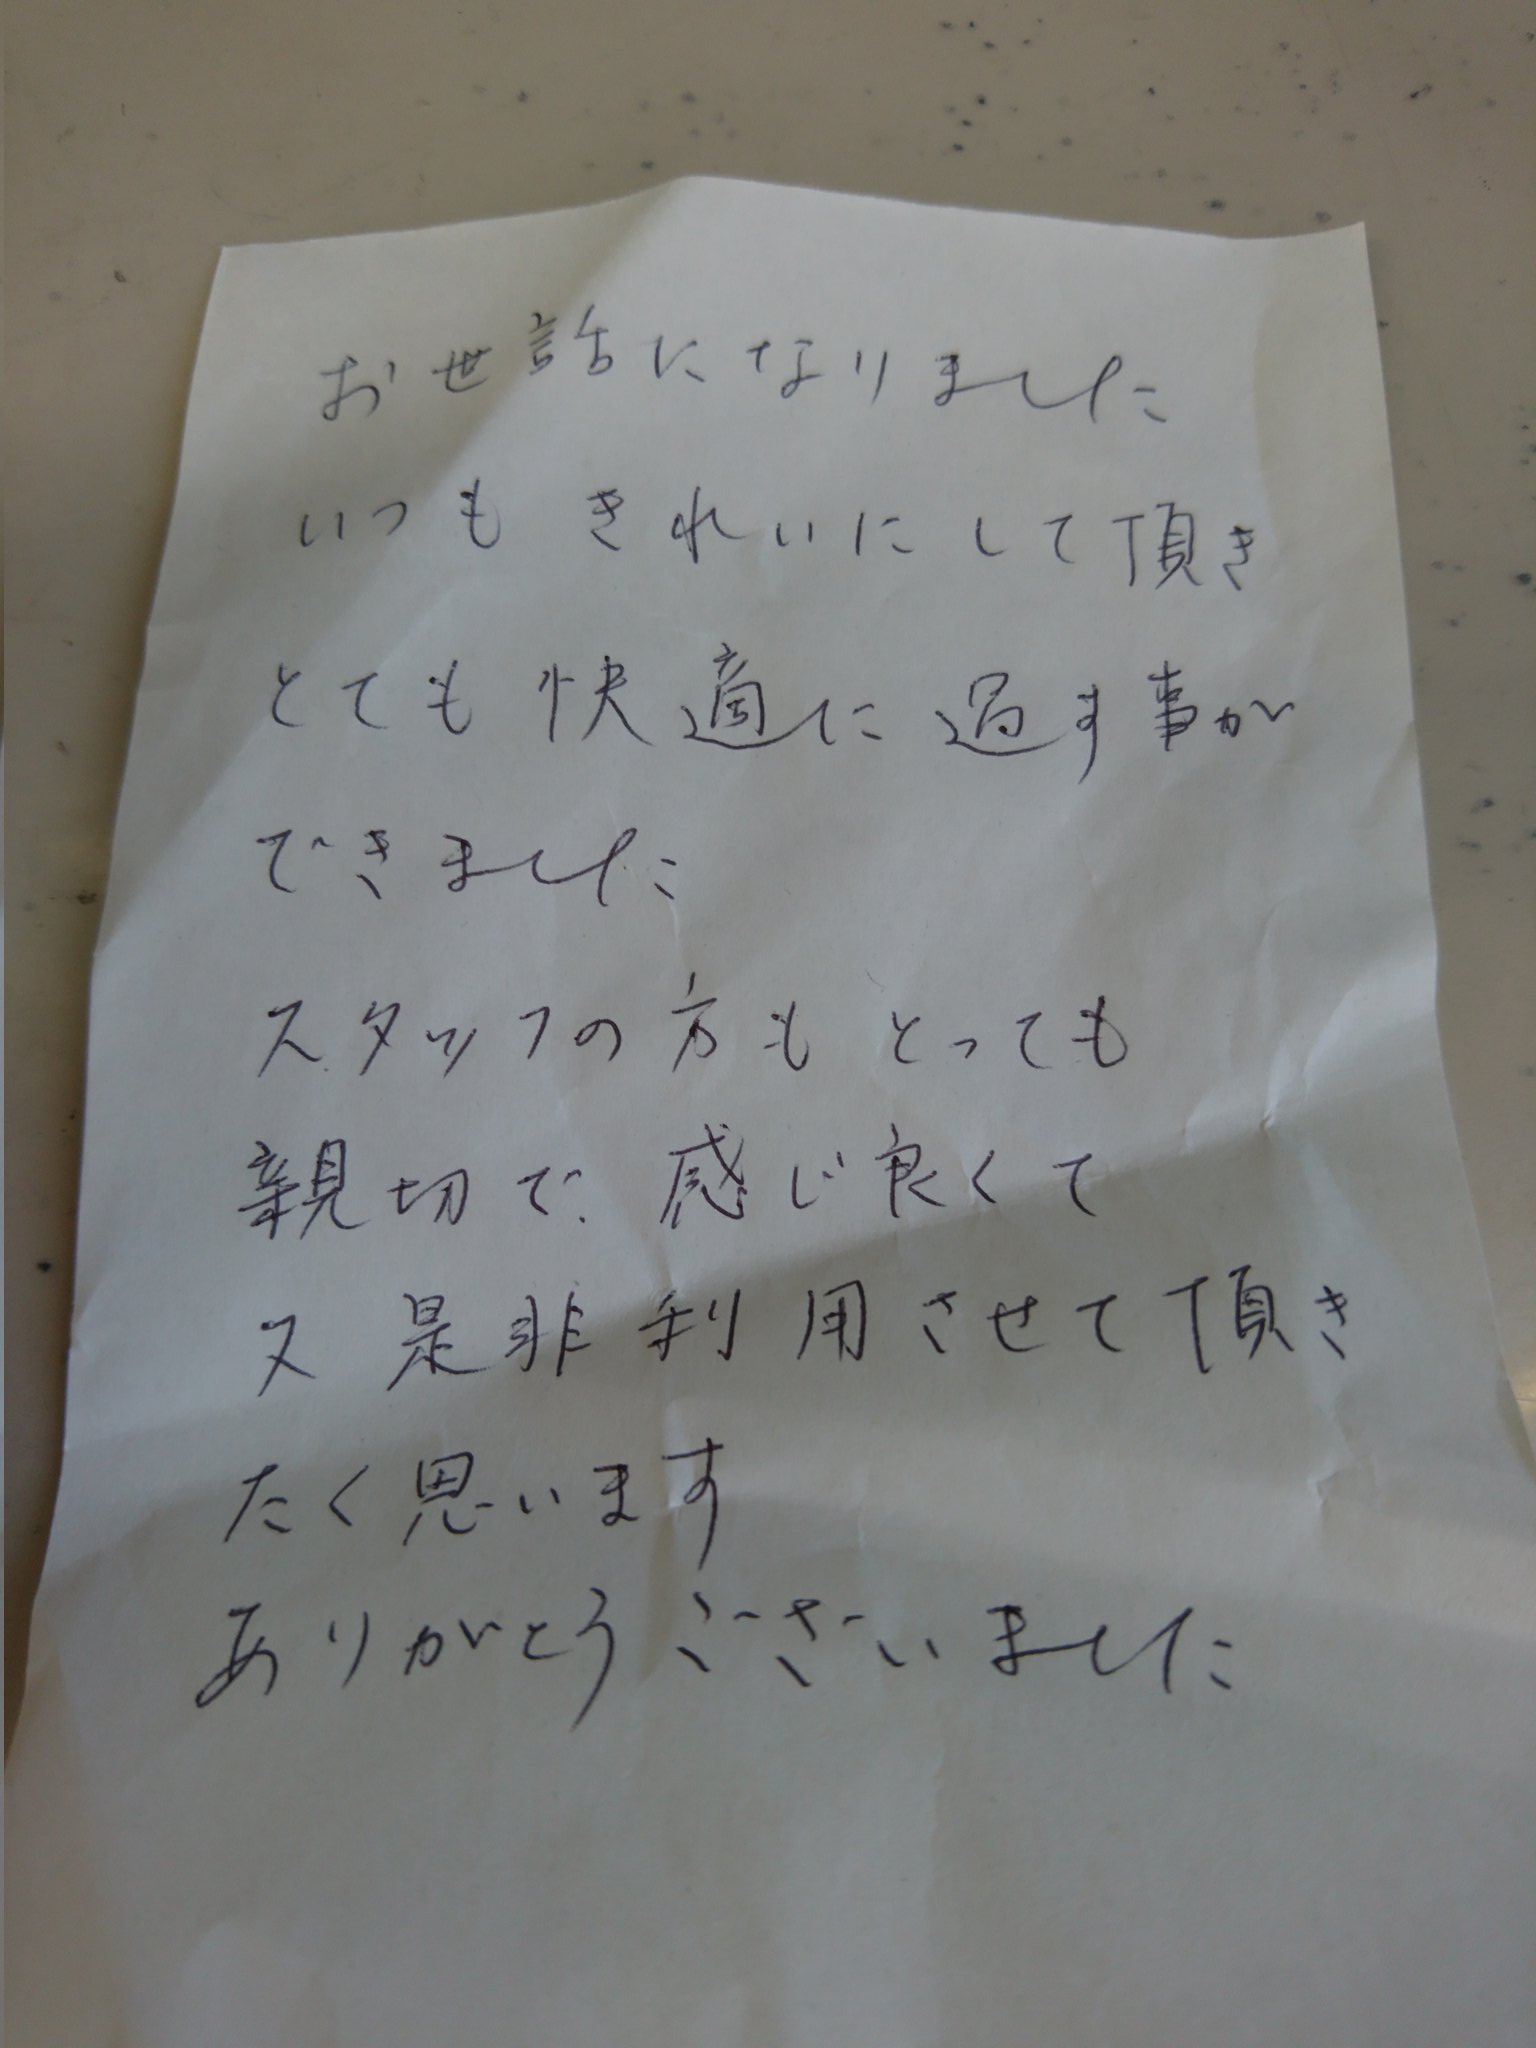 お世話になりました
いつもきれいにして頂き
とても快適に過す事が
できました
スタッフの方もとっても
親切で感じ良くて
又是非利用させて頂き
たく思います
ありがとうございました